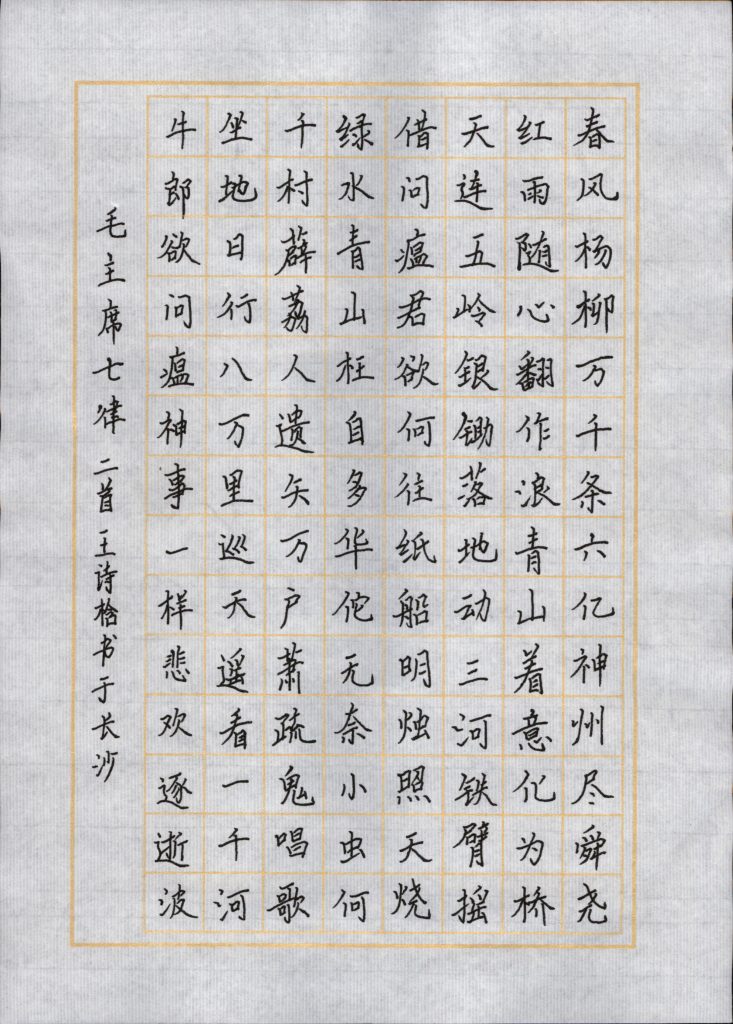 春风杨柳万千条六亿神州尽舜尧
红雨随心翻作浪青山着意化为桥
天连五岭银锄落地动三河铁臂摇
借问瘟君欲何往纸船明烛照天烧
绿水青山枉自多华佗无奈小虫何
千村薜荔人遗矢万户萧疏鬼唱歌
坐地日行八万里巡天遥看一千河
牛郎欲问瘟神事一样悲欢逐逝波
毛主席七律二首王诗书于长沙